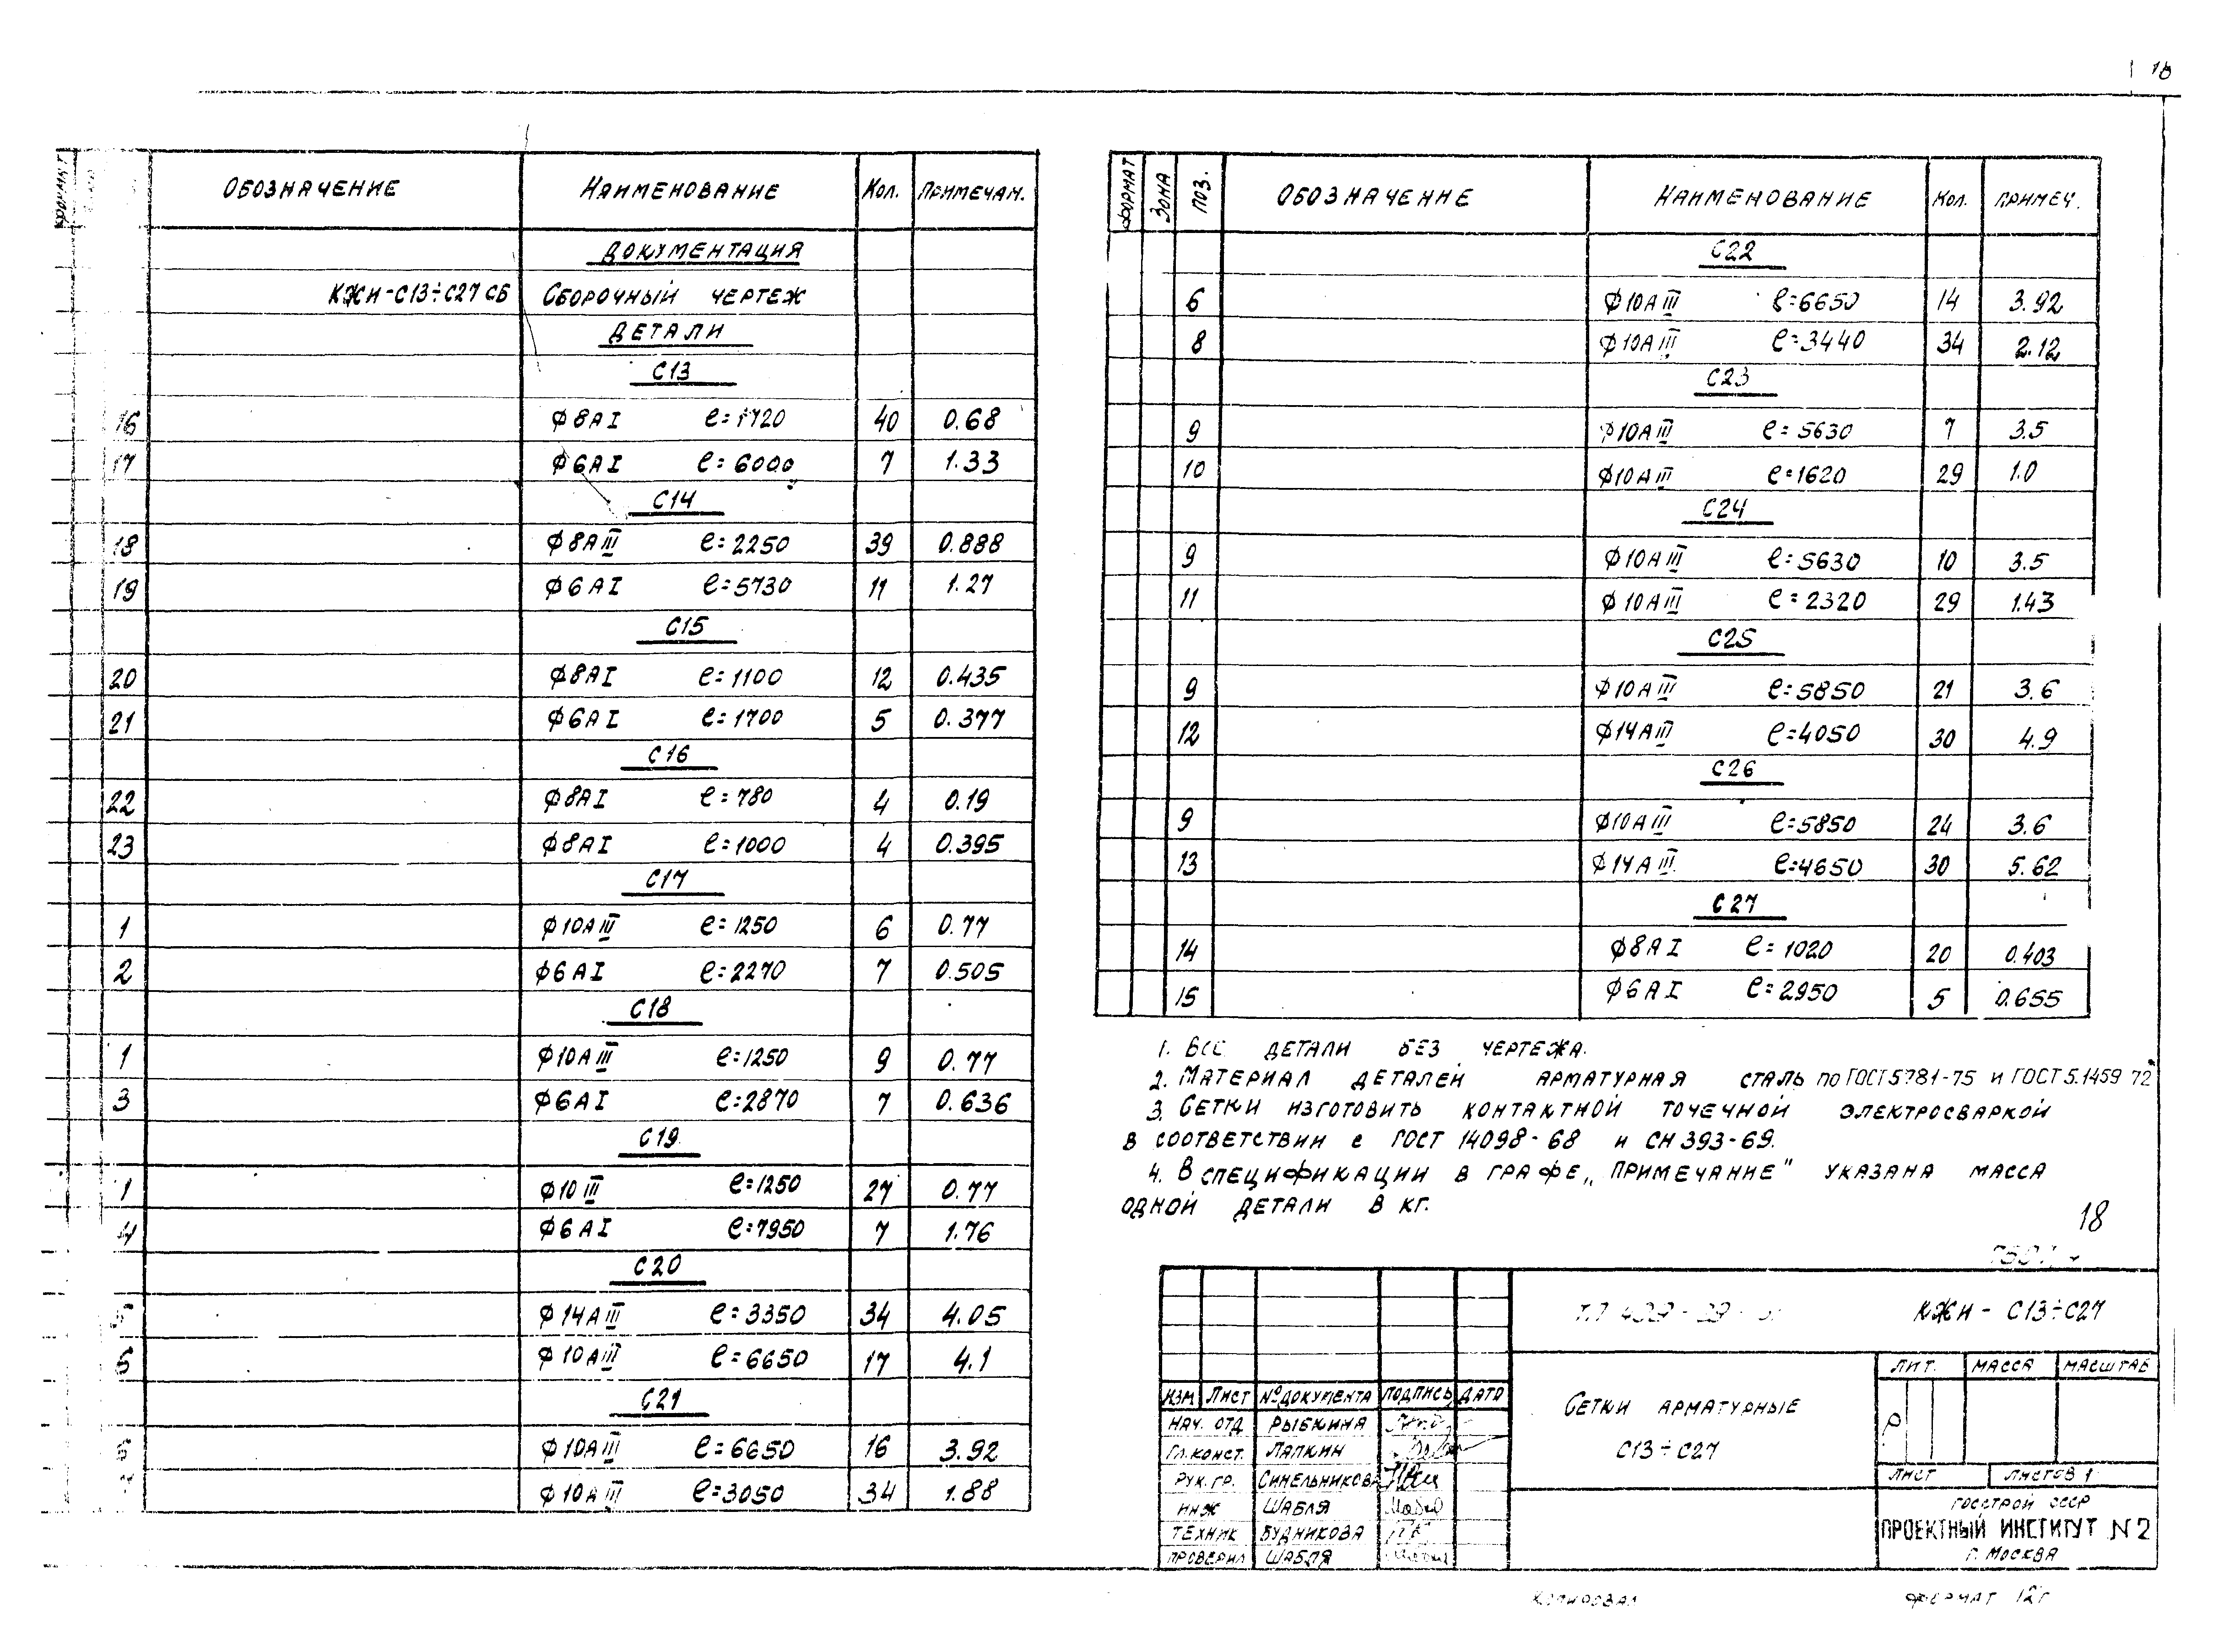 18
ФОРМАТ ОБОЗНАЧЕНИЕ НАИМЕНОВАНИЕ КОЛ. ПРИМЕЧАН.
ДОКУМЕНТАЦИЯ
КЖИ-С13÷С27 СБ СБОРОЧНЫЙ ЧЕРТЕЖ
ДЕТАЛИ
С13
16 Ф8АI ℓ=1720 40 0.68
17 Ф6АI ℓ=6000 7 1.33
С14
18 Ф8АIII ℓ=2250 39 0.888
19 Ф6АI ℓ=5730 11 1.27
С15
20 Ф8АI ℓ=1100 12 0.435
21 Ф6АI ℓ=1700 5 0.377
С16
22 Ф8АI ℓ=780 4 0.19
23 Ф8АI ℓ=1000 4 0.395
С17
1 Ф10АIII ℓ=1250 6 0.77
2 Ф6АI ℓ=2270 7 0.505
С18
1 Ф10АIII ℓ=1250 9 0.77
3 Ф6АI ℓ=2870 7 0.636
С19
1 Ф10III ℓ=1250 27 0.77
4 Ф6АI ℓ=7950 7 1.76
С20
5 Ф14АIII ℓ=3350 34 4.05
6 Ф10АIII ℓ=6650 17 4.1
С21
6 Ф10АIII ℓ=6650 16 3.92
Ф10АIII ℓ=3050 34 1.88
ФОРМАТ ЗОНА ПОЗ. ОБОЗНАЧЕНИЕ НАИМЕНОВАНИЕ КОЛ. ПРИМЕЧ.
С22
6 Ф10АIII ℓ=6650 14 3.92
8 Ф10АIII ℓ=3440 34 2.12
С23
9 Ф10АIII ℓ=5630 7 3.5
10 Ф10АIII ℓ=1620 29 1.0
С24
9 Ф10АIII ℓ=5630 10 3.5
11 Ф10АIII ℓ=2320 29 1.43
С25
9 Ф10АIII ℓ=5850 21 3.6
12 Ф14АIII ℓ=4050 30 4.9
С26
9 Ф10АIII ℓ=5850 24 3.6
13 Ф14АIII ℓ=4650 30 5.62
С27
14 Ф8АI ℓ=1020 20 0.403
15 Ф6АI ℓ=2950 5 0.655
1. ВСЕ ДЕТАЛИ БЕЗ ЧЕРТЕЖА.
2. МАТЕРИАЛ ДЕТАЛЕЙ АРМАТУРНАЯ СТАЛЬ ПО ГОСТ 5781-75 И ГОСТ 5.1459 72*
3. СЕТКИ ИЗГОТОВИТЬ КОНТАКТНОЙ ТОЧЕЧНОЙ ЭЛЕКТРОСВАРКОЙ
В СООТВЕТСТВИИ С ГОСТ 14098-68 И СН 393-69.
4. В СПЕЦИФИКАЦИИ В ГРАФЕ „ПРИМЕЧАНИЕ" УКАЗАНА МАССА
ОДНОЙ ДЕТАЛИ В КГ.
18
КЖИ - С13÷С27
ЛИТ. МАССА МАСШТАБ
ИЗМ ЛИСТ №ДОКУМЕНТА ПОДПИСЬ ДАТА
НАЧ. ОТД РЫБКИНА
ГЛ.КОНСТ. ЛАПКИН
РУК. ГР. СИНЕЛЬНИКОВА
ИНЖ ШАБЛЯ
ТЕХНИК БУДНИКОВА
ПРОВЕРИЛ ШАБЛЯ
СЕТКИ АРМАТУРНЫЕ
С13÷С27
Р
ЛИСТ ЛИСТОВ 1
ГОССТРОЙ СССР
ПРОЕКТНЫЙ ИНСТИТУТ N2
Г. МОСКВА
КОПИРОВАЛ ФОРМАТ 12Г